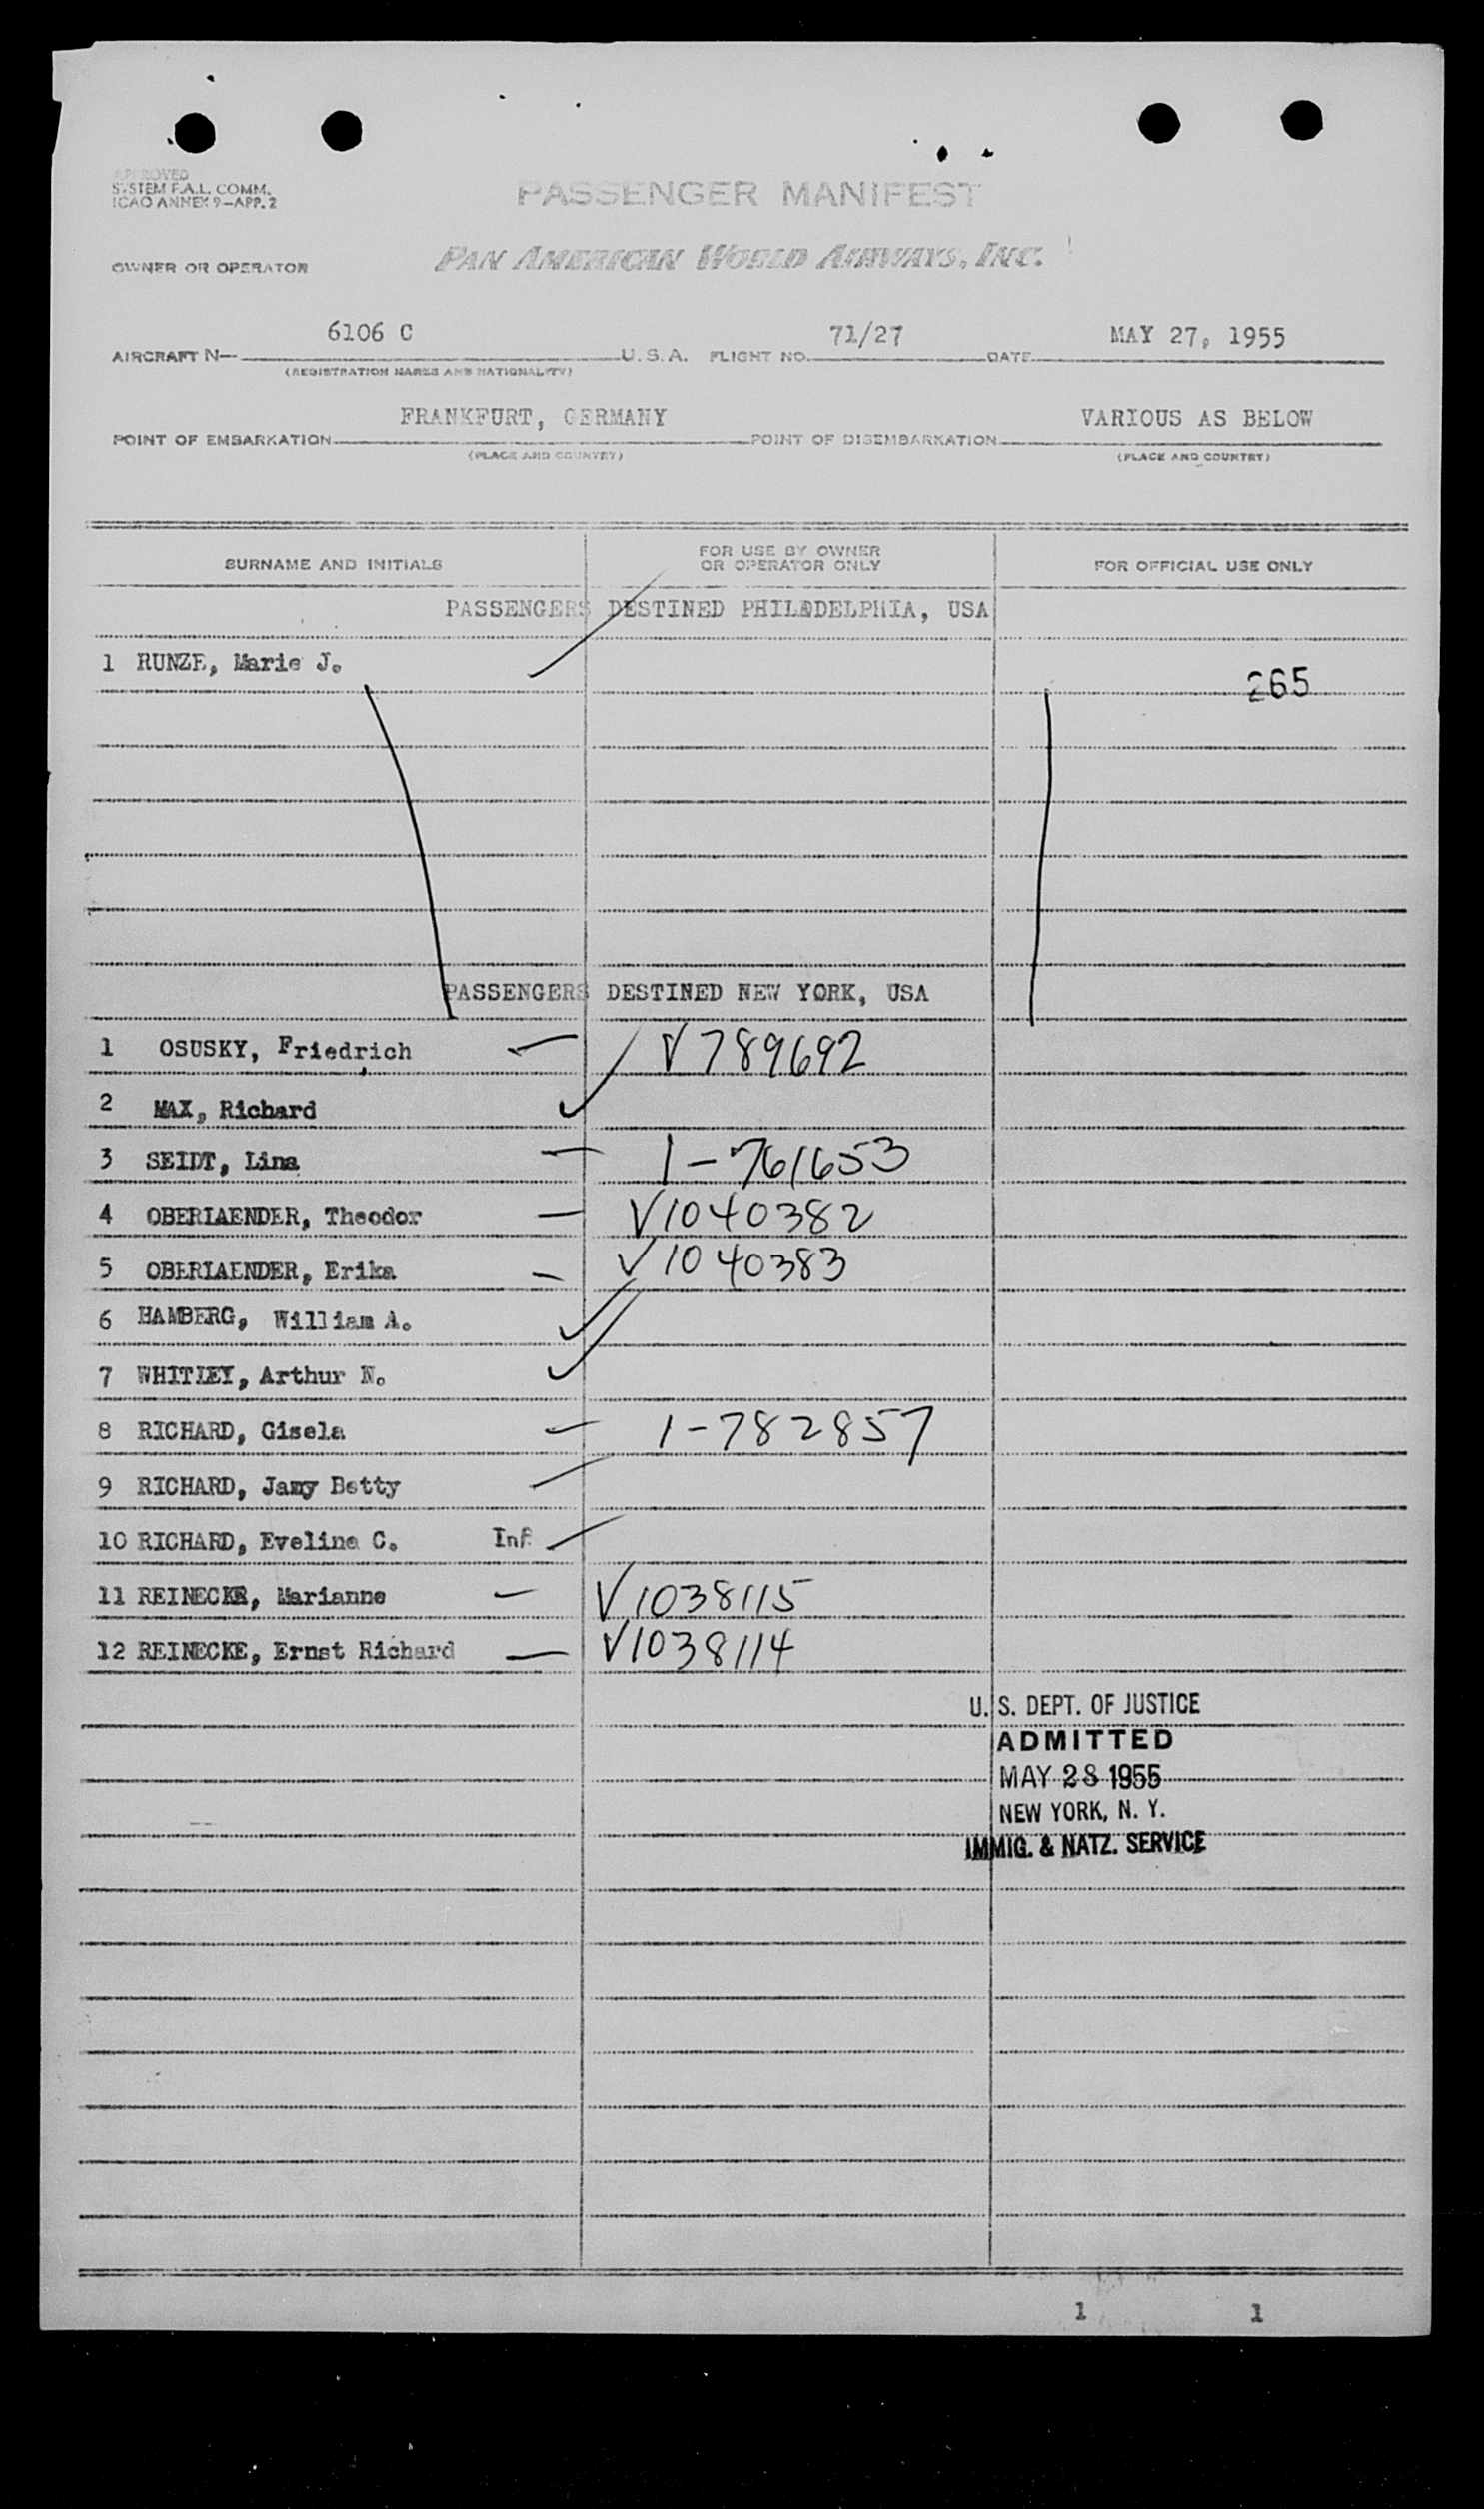 APPROVED
SYSTEM F.A.L. COMM.
ICAO ANNEX 9-APP. 2
PASSENGER MANIFEST
OWNER OR OPERATOR PAN AMERICAN WORLD AIRWAYS, INC.
AIRCRAFT N- 6106 C U.S.A. FLIGHT NO. 71/27 DATE MAY 27, 1955
(REGISTRATION MARKS AND NATIONALITY)
POINT OF EMBARKATION FRANKFURT, GERMANY POINT OF DISEMBARKATION VARIOUS AS BELOW
(PLACE AND COUNTRY) (PLACE AND COUNTRY)
SURNAME AND INITIALS FOR USE BY OWNER OR OPERATOR ONLY FOR OFFICIAL USE ONLY
PASSENGERS DESTINED PHILADELPHIA, USA
1 RUNZE, Marie J.
265
PASSENGERS DESTINED NEW YORK, USA
1 OSUSKY, Friedrich V789692
2 MAX, Richard
3 SEIDT, Lina 1-761653
4 OBERLAENDER, Theodor V1040382
5 OBERLAENDER, Erika V1040383
6 HAMBERG, William A.
7 WHITLEY, Arthur N.
8 RICHARD, Gisela 1-782857
9 RICHARD, Jamy Betty
10 RICHARD, Eveline C. Inf.
11 REINECKE, Marianne V1038115
12 REINECKE, Ernst Richard V1038114
U. S. DEPT. OF JUSTICE
ADMITTED
MAY 28 1955
NEW YORK, N. Y.
IMMIG. & NATZ. SERVICE
1 1